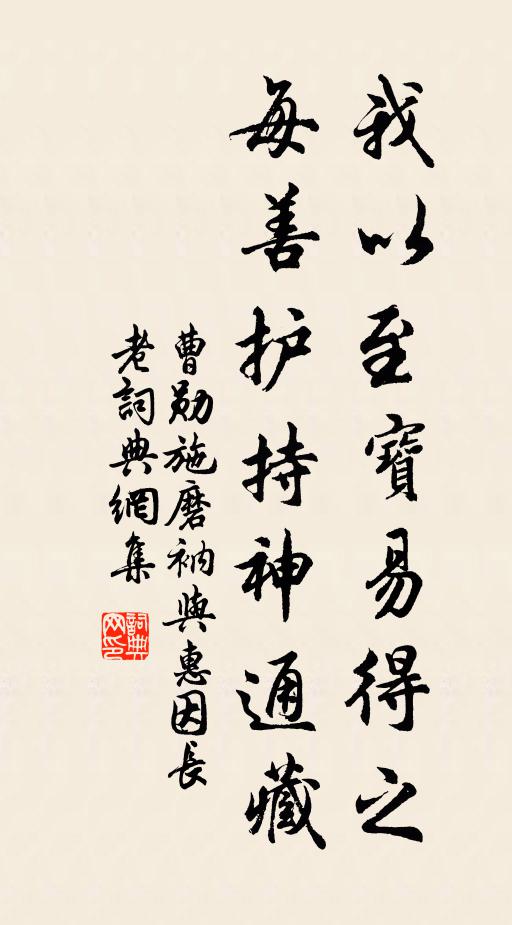 我以至寶易得之
每善护持神通藏
曹勛施磨衲與惠因長
老詞典網集
詞典網印